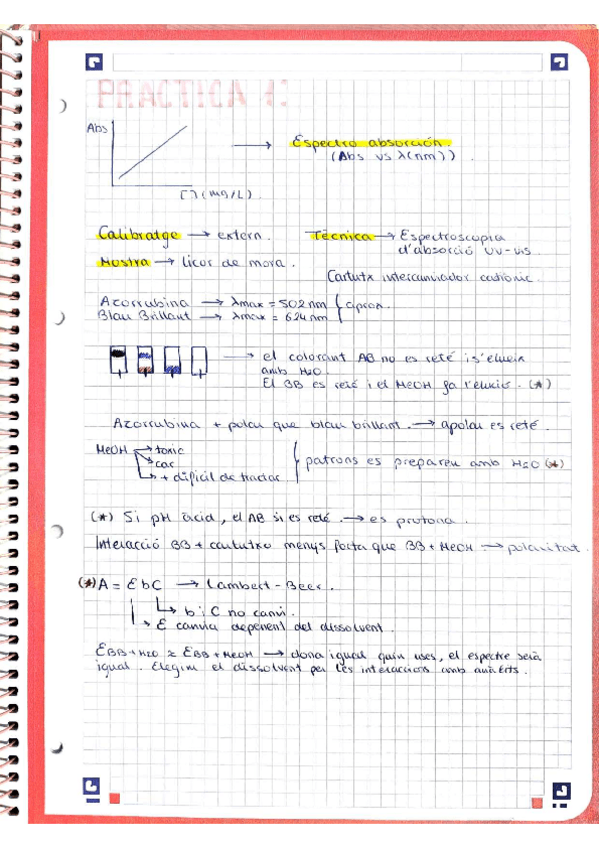 PRACTICA 1:
Abs
[ ] (mg/L).
→ Espectro absorción.
(Abs vs λ(nm))
Calibratge → extern.
Tècnica → Espectroscopia
d'absorció UV-vis.
Mostra → licor de mora.
Cartutx intercanviador catiònic.
Azorrubina → λmax = 502 nm
Blau Brillant → λmax = 624 nm
aprox.
→ el colorant AB no es reté i s'elueix
amb H2O.
El BB es reté i el MeOH fa l'elució. (*)
Azorrubina + polar que blau brillant. → apolar es reté.
MeOH → tòxic
→ car
→ + difícil de tractar
patrons es preparen amb H2O (*)
(*) Si pH àcid, el AB si es reté. → es protona.
Interacció BB + cartutxo menys forta que BB + MeOH → polaritat.
(*) A = ε b C → Lambert-Beer.
→ b i C no canvi.
→ ε canvia depenent del dissolvent.
εBB+H2O ≈ εBB+MeOH → dona igual quin uses, el espectre serà
igual. Elegim el dissolvent per les interaccions amb analits.